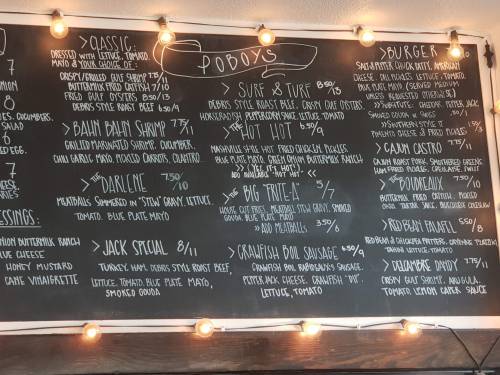 7
7
CUCUMBERS,
SALAD
ED EGG.
7
CHEESE,
SSINGS:
ONION BUTTERMILK RANCH
BLUE CHEESE
HONEY MUSTARD
CANE VINAIGRETTE
POBOYS
> CLASSIC:
DRESSED WITH LETTUCE, TOMATO,
MAYO & YOUR CHOICE OF:
CRISPY/GRILLED GULF SHRIMP 7.75/11
BUTTERMILK FRIED CATFISH 7.50/10
FRIED GULF OYSTERS 8.50/13
DEBRIS STYLE ROAST BEEF 6.50/9
> BAHN BAHN SHRIMP 7.75/11
GRILLED MARINATED SHRIMP, CUCUMBER,
CHILI GARLIC MAYO, PICKLED CARROTS, CILANTRO
> THE DARLENE 7.50/10
MEATBALLS SIMMERED IN "STEW" GRAVY, LETTUCE,
TOMATO, BLUE PLATE MAYO
> JACK SPECIAL 8/11
TURKEY, HAM, DEBRIS STYLE ROAST BEEF,
LETTUCE, TOMATO, BLUE PLATE MAYO,
SMOKED GOUDA
> SURF & TURF 8.50/13
DEBRIS STYLE ROAST BEEF, CRISPY GULF OYSTERS,
HORSERADISH PEPPERCORN SAUCE, LETTUCE, TOMATO
> THE HOT HOT 6.50/9
NASHVILLE STYLE HOT FRIED CHICKEN, PICKLES,
BLUE PLATE MAYO, GREEN ONION BUTTERMILK RANCH
>> (YES, IT'S HOT)
ADD AVAILABLE "HOT HOT"
> THE BIG "FRITE-A" 5/7
HOUSE CUT FRIES, MEATBALL STEW GRAVY, SMOKED
GOUDA, BLUE PLATE MAYO
>> ADD MEATBALLS 3.50/6
> CRAWFISH BOIL SAUSAGE 6.50/9
CRAWFISH BOIL SAUSAGE,
PEPPER JACK CHEESE, CRAWFISH "DIP",
LETTUCE, TOMATO
> BURGER 10
CHEESE, DILL PICKLES, LETTUCE, TOMATO,
BLUE PLATE MAYO (SERVED MEDIUM
UNLESS REQUESTED OTHERWISE)
>> SUBSTITUTE: CHEDDAR, PEPPER JACK,
SMOKED GOUDA
>> SOUTHERN STYLE IT
PIMENTO CHEESE & FRIED PICKLES
> CAJUN CASTRO 7.75/11
CAJUN ROAST PORK, SMOTHERED GREENS,
HAM, FRIED PICKLES, SWISS
> THE BOUDREAUX 7.50/10
BUTTERMILK FRIED CATFISH, PICKLED
> RED BEAN FALAFEL 5.50/8
RED BEAN & CHICKPEA FRITTERS,
> DELCAMBRE DANDY 7.75/11
CRISPY GULF SHRIMP, ARUGULA,
TOMATO, LEMON CAPER SAUCE